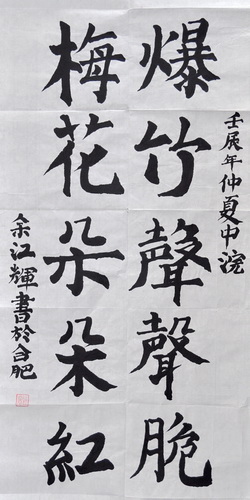 壬展年仲夏中浣
爆竹聲聲脆
梅花朵朵紅
余江輝書於合肥